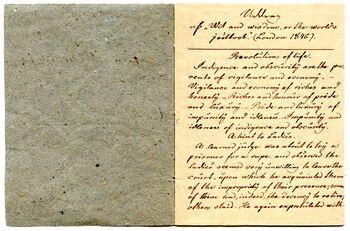 of "Wit and wisdom, or the world's
jestbook. (London 1846).
Revolutions of life.
Indigence and obscurity are the pa-
rents of vigilance and economy. –
Vigilance and economy of riches and
honesty. – Riches and honour of pride
and luxury – Pride and luxury of
impurity and idleness. Impurity and
idleness of indigence and obscurity.
A hint to Ladies.
A learned judge was about to try a
prisoner for a rape, and observed the
ladies seemed very unwilling to leave the
court, upon which he acquainted them
of the impropriety of their presence; some
of them and, indeed, the decency to retire,
others staid. He again expostulated with